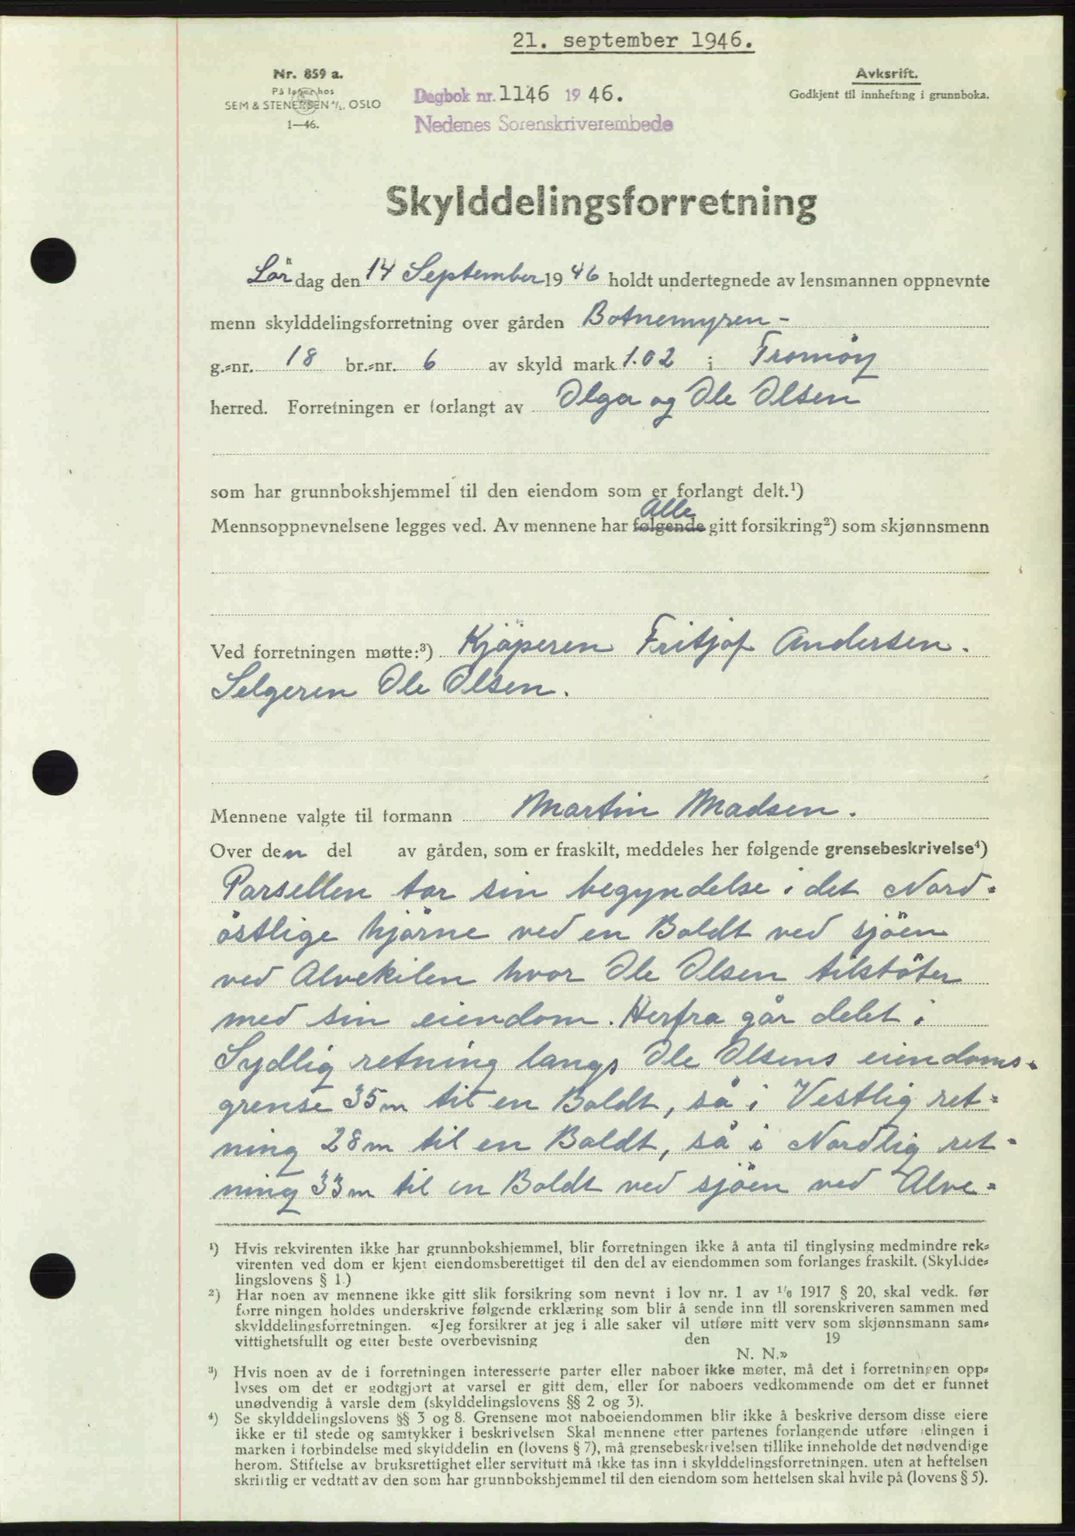 21. september 1946.
Nr. 859 a.
På lager hos
SEM & STENERSEN A/S. OSLO
1—46.
Dagbok nr. 1146 1946.
Nedenes Sorenskriverembede
Avksrift.
Godkjent til innhefting i grunnboka.
Skylddelingsforretning
Lördag den 14 September 1946 holdt undertegnede av lensmannen oppnevnte
menn skylddelingsforretning over gården Botnemyren -
g.-nr. 18 br.-nr. 6 av skyld mark 1.02 i Tromöy
herred. Forretningen er forlangt av Olga og Ole Olsen
som har grunnbokshjemmel til den eiendom som er forlangt delt.¹)
Alle
Mennsoppnevnelsene legges ved. Av mennene har følgende gitt forsikring²) som skjønnsmenn
Ved forretningen møtte:³) Kjöperen Fritjof Andersen.
Selgeren Ole Olsen.
Mennene valgte til formann Martin Madsen.
Over den del av gården, som er fraskilt, meddeles her følgende grensebeskrivelse⁴)
Parsellen tar sin begyndelse i det Nord-
östlige hjörne ved en Boldt ved sjöen
ved Alvekilen hvor Ole Olsen tilstöter
med sin eiendom. Herfra går delet i
Sydlig retning langs Ole Olsens eiendoms-
grense 35m til en Boldt, så i Vestlig ret-
ning 28m til en Boldt, så i Nordlig ret-
ning 33m til en Boldt ved sjöen ved Alve-
¹) Hvis rekvirenten ikke har grunnbokshjemmel, blir forretningen ikke å anta til tinglysing medmindre rek-
virenten ved dom er kjent eiendomsberettiget til den del av eiendommen som forlanges fraskilt. (Skyldde-
lingslovens § 1.)
²) Har noen av mennene ikke gitt slik forsikring som nevnt i lov nr. 1 av 1/6 1917 § 20, skal vedk. før
forretningen holdes underskrive følgende erklæring som blir å sende inn til sorenskriveren sammen med
skylddelingsforretningen. «Jeg forsikrer at jeg i alle saker vil utføre mitt verv som skjønnsmann sam-
vittighetsfullt og etter beste overbevisning den 19
N. N.»
³) Hvis noen av de i forretningen interesserte parter eller naboer ikke møter, må det i forretningen opp-
lyses om det er godtgjort at varsel er gitt dem, eller for naboers vedkommende om det er funnet
unødvendig å varsle dem (skylddelingslovens §§ 2 og 3).
⁴) Se skylddelingslovens §§ 3 og 8. Grensene mot naboeiendommen blir ikke å beskrive dersom disse eiere
ikke er til stede og samtykker i beskrivelsen Skal mennene etter partenes forlangende utføre delingen i
marken i forbindelse med skylddelingen (lovens § 7), må grensebeskrivelsen tillike inneholde det nødvendige
herom. Stiftelse av bruksrettighet eller servitutt må ikke tas inn i skylddelingsforretningen, uten at heftelsen
skriftlig er vedtatt av den som har grunnbokshjemmel til den eiendom som heftelsen skal hvile på (lovens § 5).